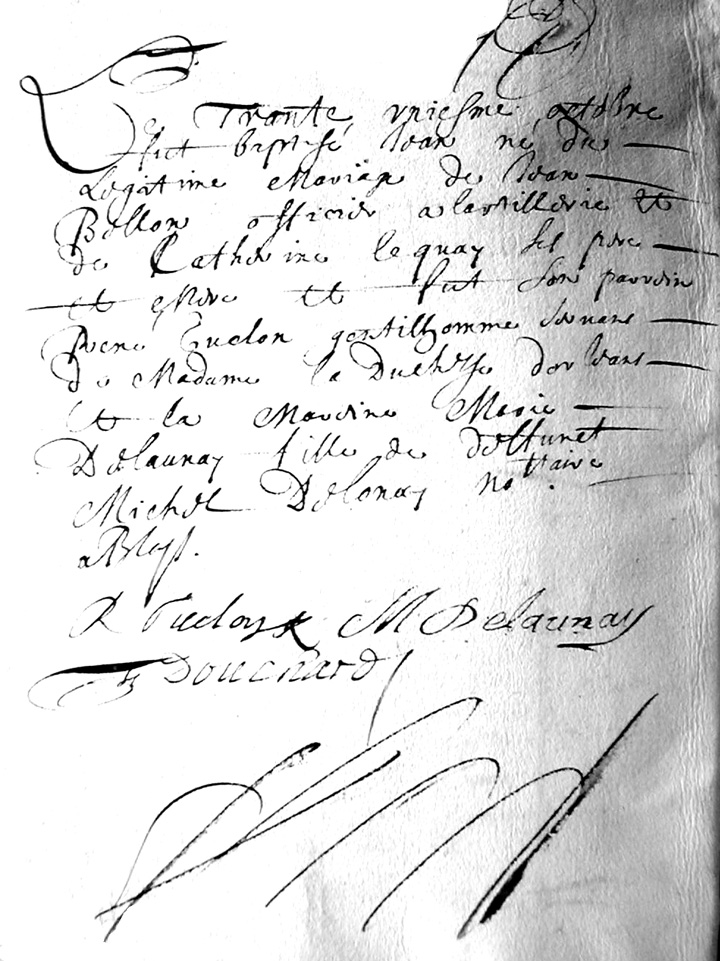 Le Trante vniesme octobre
fut baptisé Jean né du
Legitime Mariage de Jean
Bellon officier a lartillerie et
de Catherine lequay ses pere
et Mere et fut son parrein
Rene gentilhomme servant
de Madame la Duchesse dorleans
et la Mareine Marie
Delaunay fille de deffunct
Michel Delonay nottaire
a Bloys.
R M Delaunay
Douchard